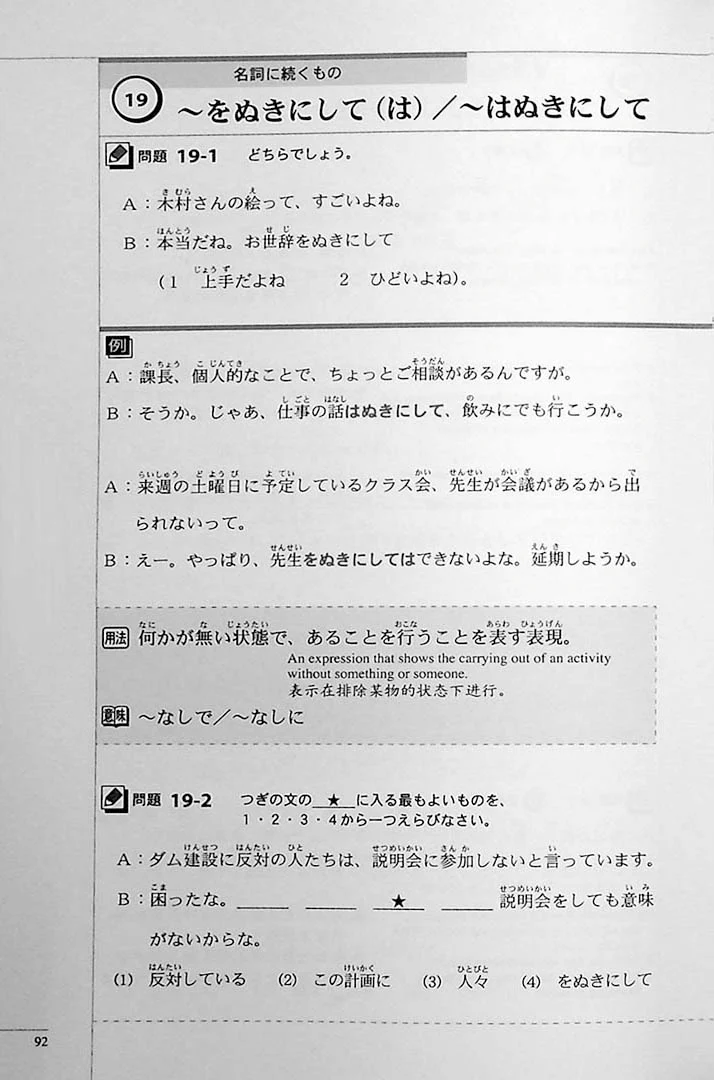 名詞に続くもの
19 ～をぬきにして(は)／～はぬきにして
問題 19-1 どちらでしょう。
A：木村さんの絵って、すごいよね。
B：本当だね。お世辞をぬきにして
(1 上手だよね 2 ひどいよね)。
例
A：課長、個人的なことで、ちょっとご相談があるんですが。
B：そうか。じゃあ、仕事の話はぬきにして、飲みにでも行こうか。
A：来週の土曜日に予定しているクラス会、先生が会議があるから出
られないって。
B：えー。やっぱり、先生をぬきにしてはできないよな。延期しようか。
用法 何かが無い状態で、あることを行うことを表す表現。
An expression that shows the carrying out of an activity
without something or someone.
表示在排除某物的状态下进行。
意味 ～なしで／～なしに
問題 19-2 つぎの文の ★ に入る最もよいものを、
1・2・3・4から一つえらびなさい。
A：ダム建設に反対の人たちは、説明会に参加しないと言っています。
B：困ったな。＿＿＿ ＿＿＿ ＿★＿ ＿＿＿ 説明会をしても意味
がないからな。
(1) 反対している (2) この計画に (3) 人々 (4) をぬきにして
92